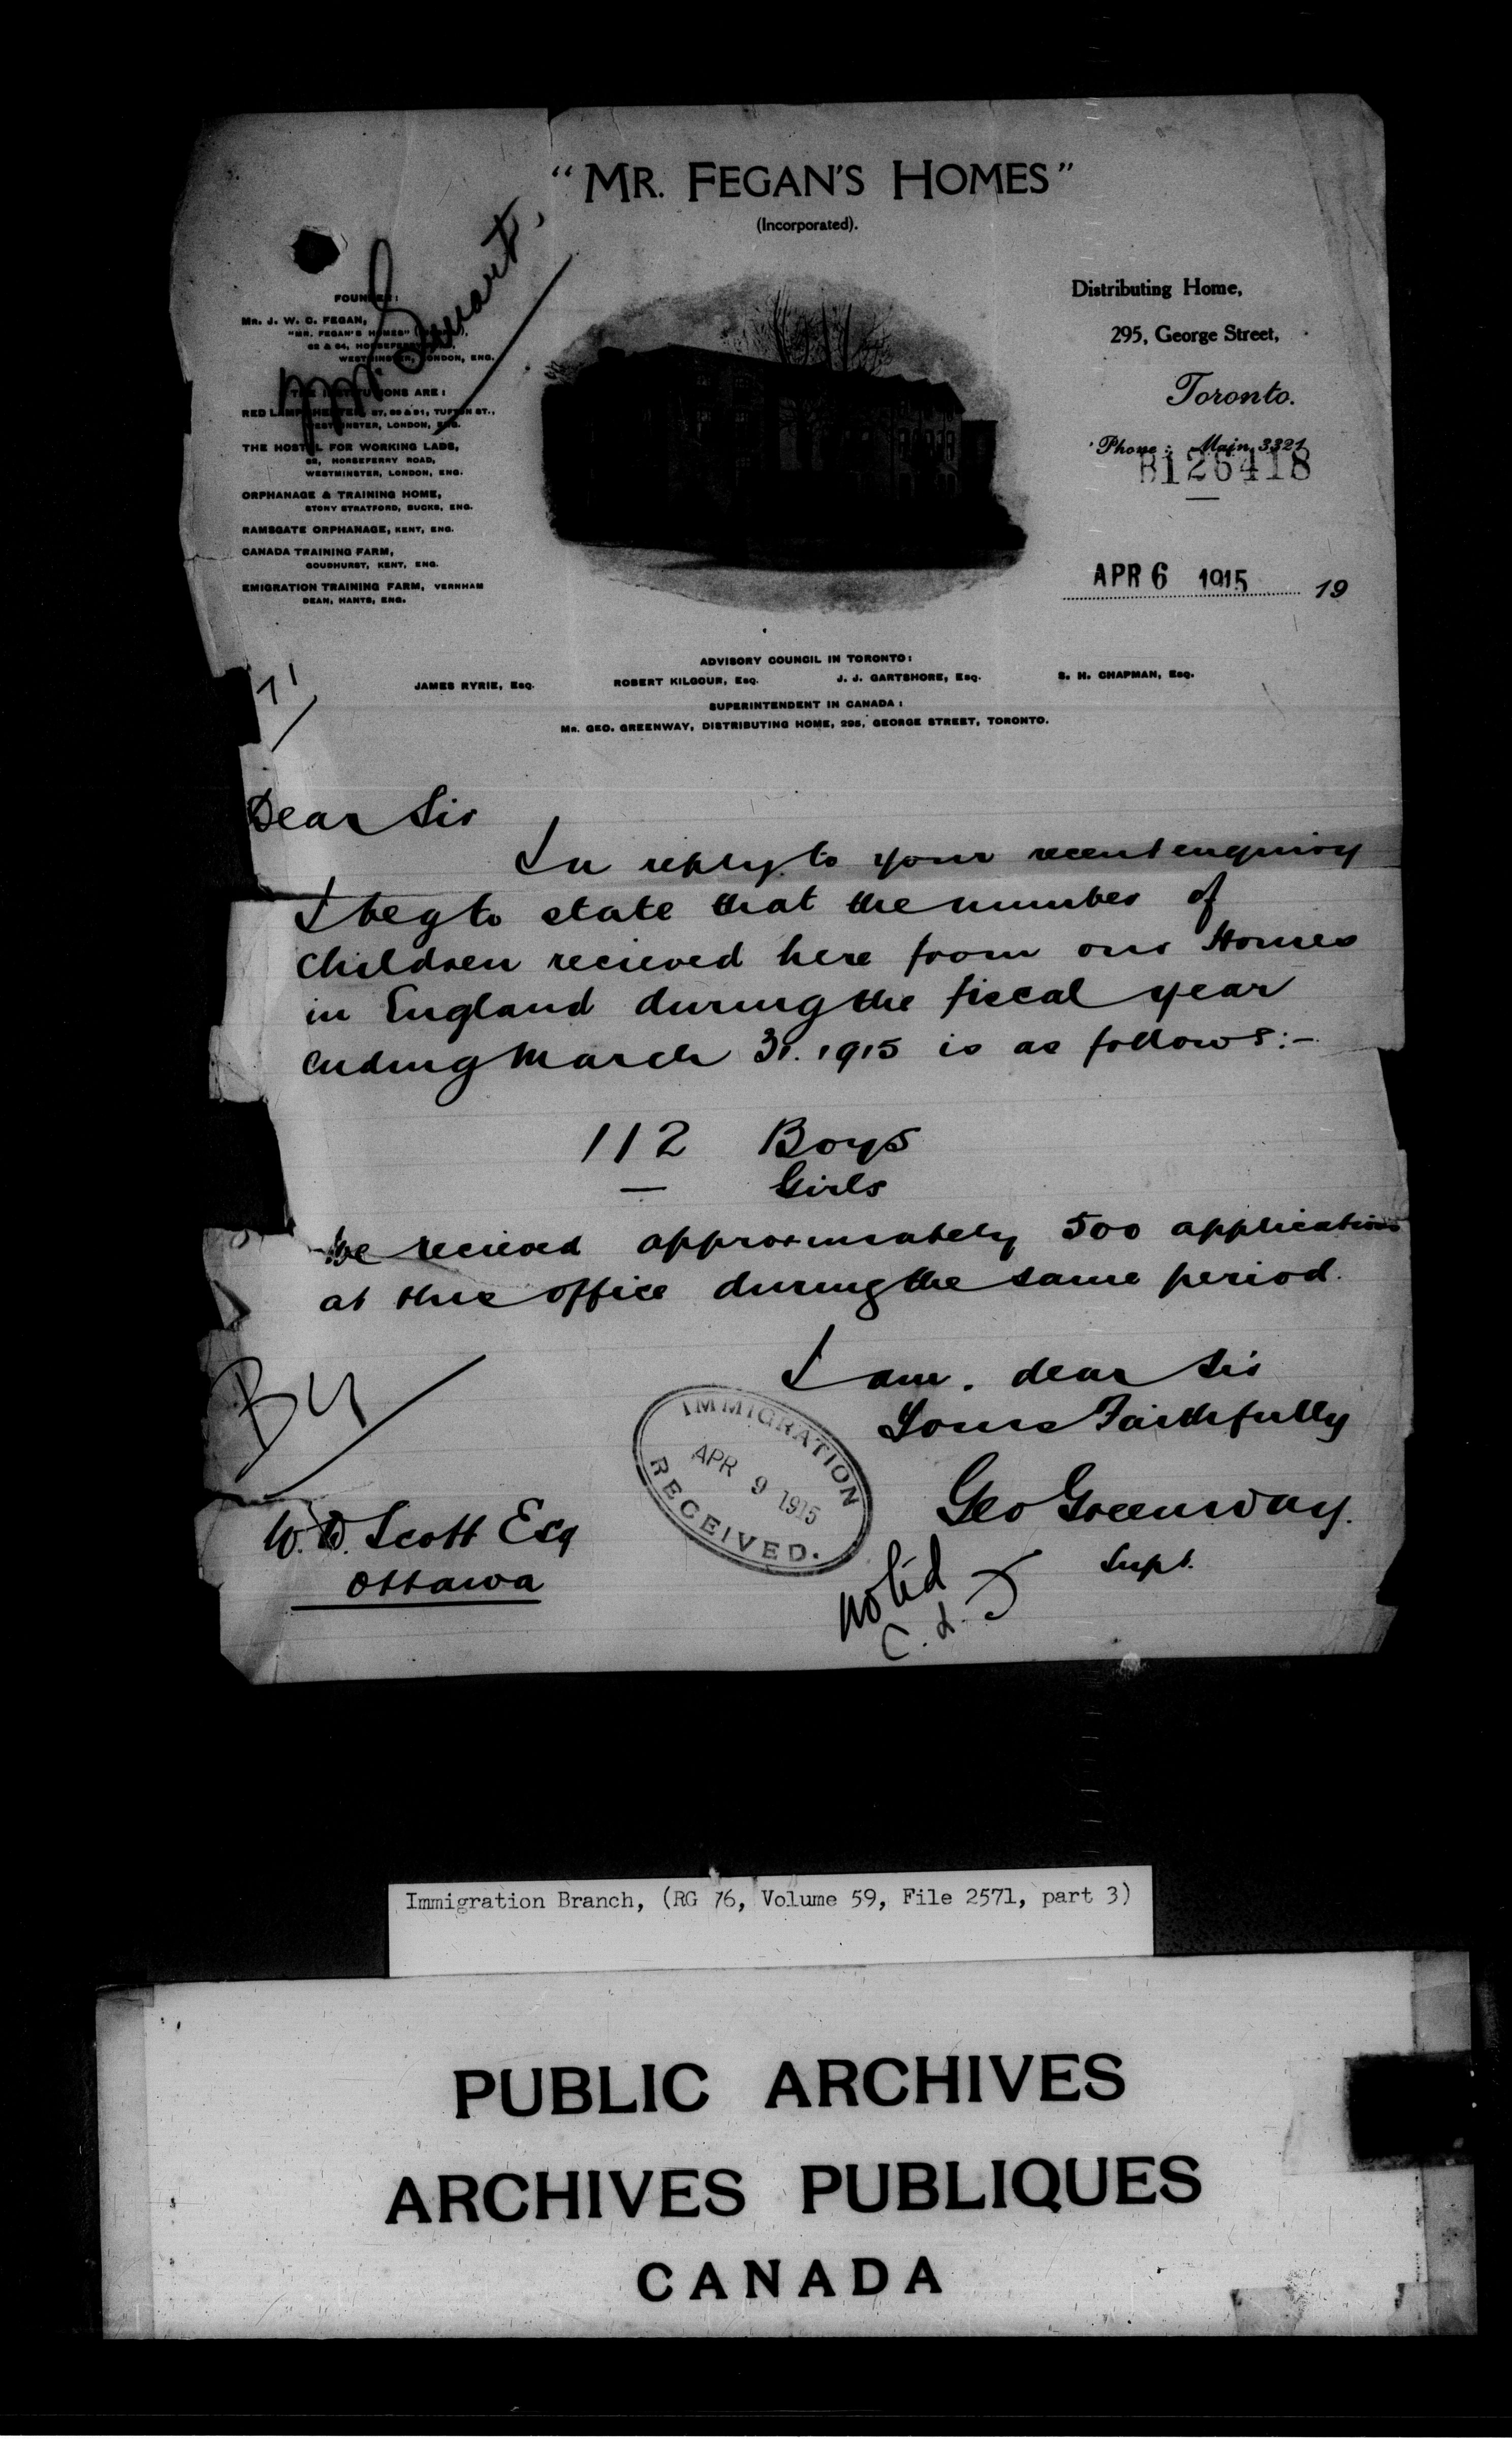 "MR. FEGAN'S HOMES"
(Incorporated).
Mr Smart,
FOUNDER:
MR. J. W. C. FEGAN,
"MR. FEGAN'S HOMES"
62 & 64, HORSEFERRY ROAD,
WESTMINSTER, LONDON, ENG.
THE INSTITUTIONS ARE:
RED LAMP SHELTER, 87, 89 & 91, TUFTON ST.,
WESTMINSTER, LONDON, ENG.
THE HOSTEL FOR WORKING LADS,
62, HORSEFERRY ROAD,
WESTMINSTER, LONDON, ENG.
ORPHANAGE & TRAINING HOME,
STONY STRATFORD, BUCKS, ENG.
RAMSGATE ORPHANAGE, KENT, ENG.
CANADA TRAINING FARM,
GOUDHURST, KENT, ENG.
EMIGRATION TRAINING FARM, VERNHAM
DEAN, HANTS, ENG.
Distributing Home,
295, George Street,
Toronto.
Phone: Main 3321
B126418
APR 6 1915 19
ADVISORY COUNCIL IN TORONTO:
JAMES RYRIE, Esq. ROBERT KILGOUR, Esq. J. J. GARTSHORE, Esq. S. H. CHAPMAN, Esq.
SUPERINTENDENT IN CANADA:
MR. GEO. GREENWAY, DISTRIBUTING HOME, 295, GEORGE STREET, TORONTO.
Dear Sir
In reply to your recent enquiry
I beg to state that the number of
Children recieved here from our Homes
in England during the fiscal year
ending March 31. 1915 is as follows:-
112 Boys
— Girls
We recieved approximately 500 applications
at this office during the same period.
I am. dear Sir
Yours Faithfully
Geo Greenway.
Supt.
IMMIGRATION
APR 9 1915
RECEIVED.
W. D. Scott Esq
Ottawa
noted
Immigration Branch, (RG 76, Volume 59, File 2571, part 3)
PUBLIC ARCHIVES
ARCHIVES PUBLIQUES
CANADA